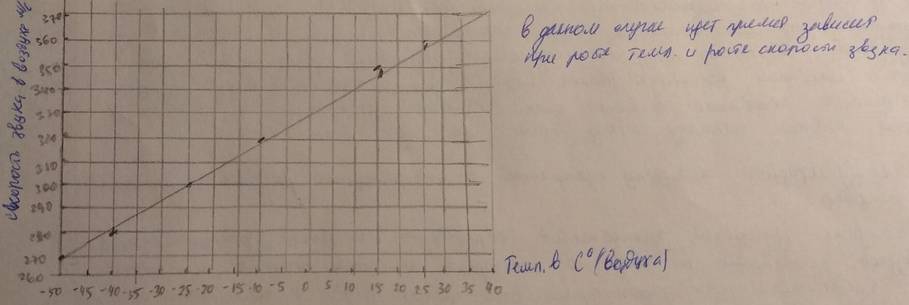 Скорость звука в воздухе м/с
370
360
350
340
330
320
310
300
290
280
270
260
-50 -45 -40 -35 -30 -25 -20 -15 -10 -5 0 5 10 15 20 25 30 35 40
Темп. в C° (Воздуха)
В данном случае идет прямая зависим
при росте темп. и росте скорости звука.